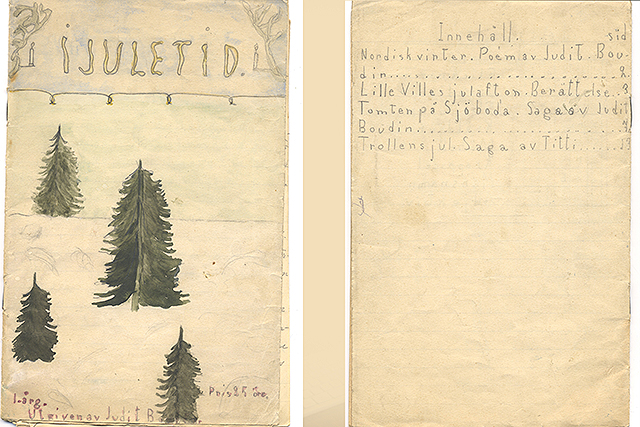 I JULETID.
1-årg.
Pris 25 öre.
Utgiven av Judit
Innehåll. sid
Nordisk vinter. Poem av Judit. Bou-
din.......................... 2.
Lille Villes julafton. Berättelse..3
Tomten på Sjöboda. Saga av Judit
Boudin.......................
Trollens jul. Saga av Titti......